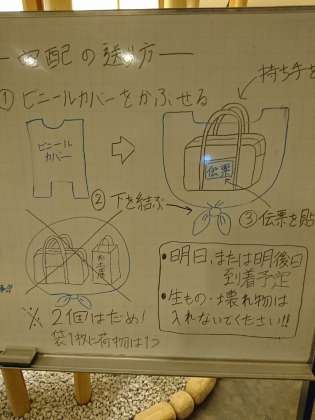 宅配の送り方
① ビニールカバーをかぶせる
持ち手を
ビニール
カバー
伝票
② 下を結ぶ
③ 伝票を貼
お土産
※ 2個はだめ!
袋1枚に荷物は1つ
• 明日、または明後日
到着予定
• 生もの・壊れ物は
入れないでください!!